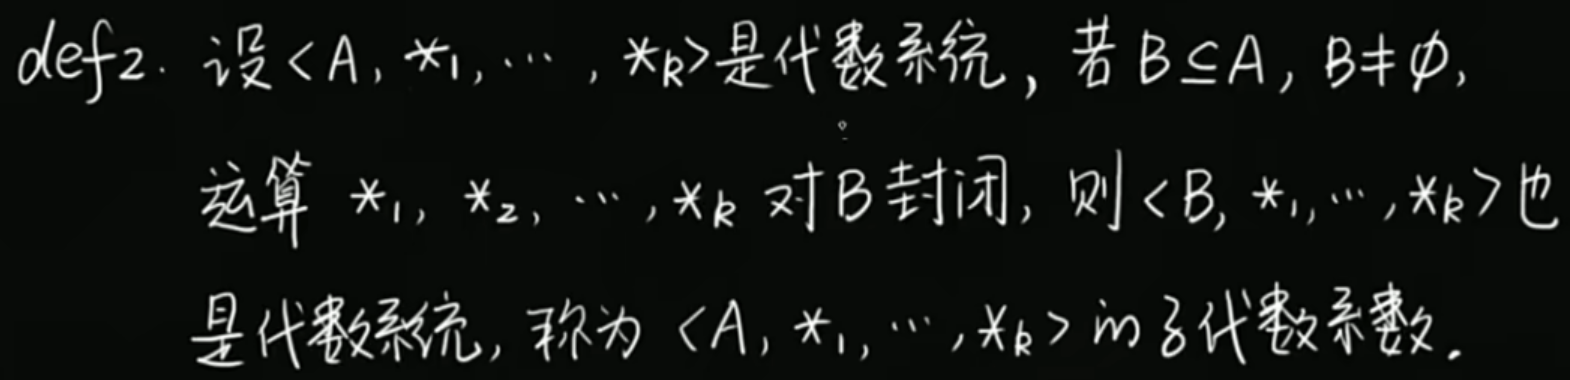 def2. 设<A, *₁, ⋯, *ₖ>是代数系统, 若B⊆A, B≠∅,
运算 *₁, *₂, ⋯, *ₖ 对B封闭, 则<B, *₁, ⋯, *ₖ>也
是代数系统, 称为 <A, *₁, ⋯, *ₖ> 的子代数系数.